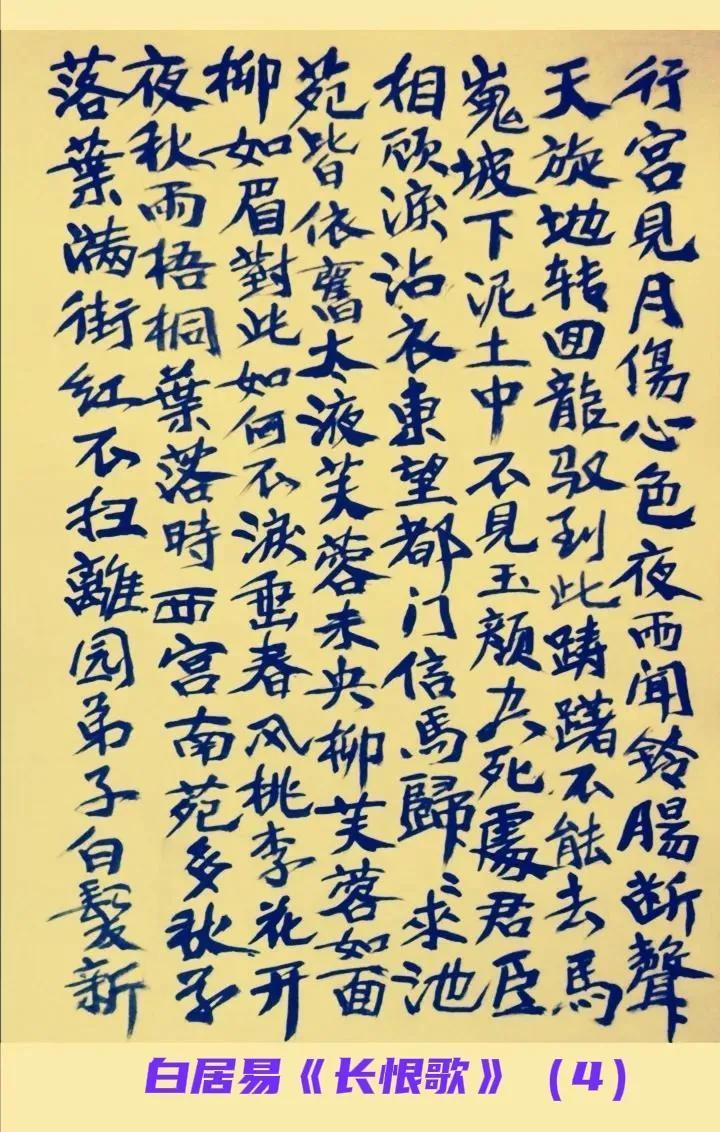 行宫見月傷心色夜雨聞铃腸断聲
天旋地转回龍驭到此踌躇不能去馬
嵬坡下泥土中不見玉颜空死處君臣
相顾淚沾衣東望都门信馬歸〻来池
苑皆依舊太液芙蓉未央柳芙蓉如面
柳如眉對此如何不淚垂春风桃李花开
夜秋雨梧桐葉落時西宫南苑多秋草
落葉满街红不扫離园弟子白髮新
白居易《长恨歌》（4）